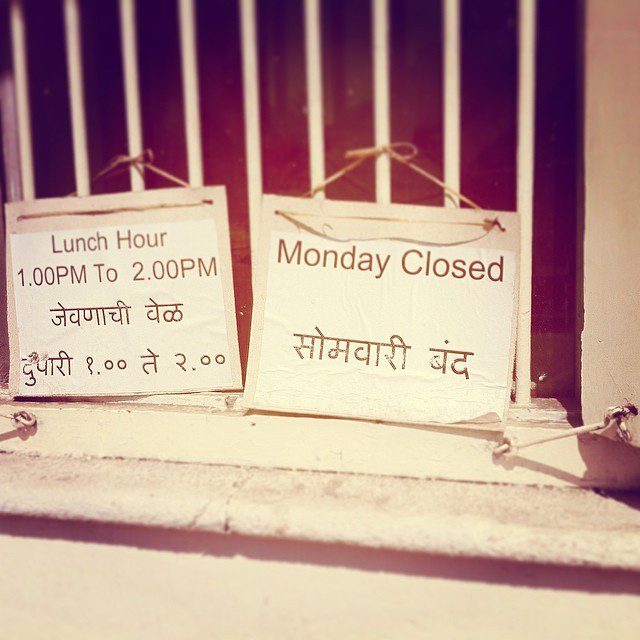 Lunch Hour
1.00PM To 2.00PM
जेवणाची वेळ
दुपारी १.०० ते २.००
Monday Closed
सोमवारी बंद